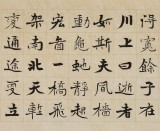 得寬餘子在
川上曰逝者
如斯夫風檣
動龜蛇靜起
宏圖一橋飛
架南北天塹
變通途更立